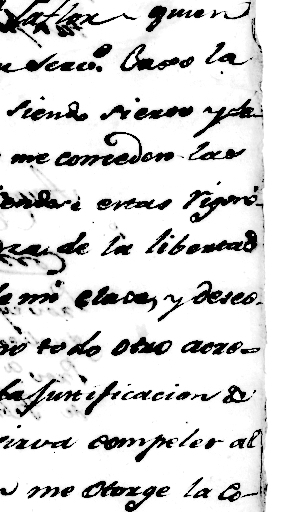 quien
serv.º Caso la
siendo siervo y la
me conceden las
estas rigoro
de la libertad
de mi clase, y deseo
todo otro acre-
la justificacion de
sirva compeler al
me otorge la co-